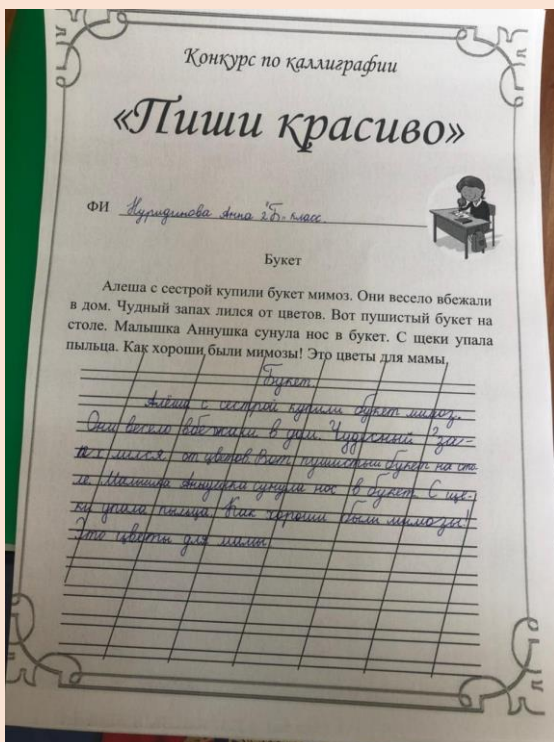 Конкурс по каллиграфии
«Пиши красиво»
ФИ Нуридинова Анна 2"Б" класс.
Букет
Алеша с сестрой купили букет мимоз. Они весело вбежали
в дом. Чудный запах лился от цветов. Вот пушистый букет на
столе. Малышка Аннушка сунула нос в букет. С щеки упала
пыльца. Как хороши были мимозы! Это цветы для мамы.
Букет
Алёша с сестрой купили букет мимоз.
Они весело вбежали в дом. Чудесный за-
пах лился от цветов. Вот пушистый букет на сто-
ле. Малышка Аннушка сунула нос в букет. С ще-
ки упала пыльца. Как хороши были мимозы!
Это цветы для мамы.